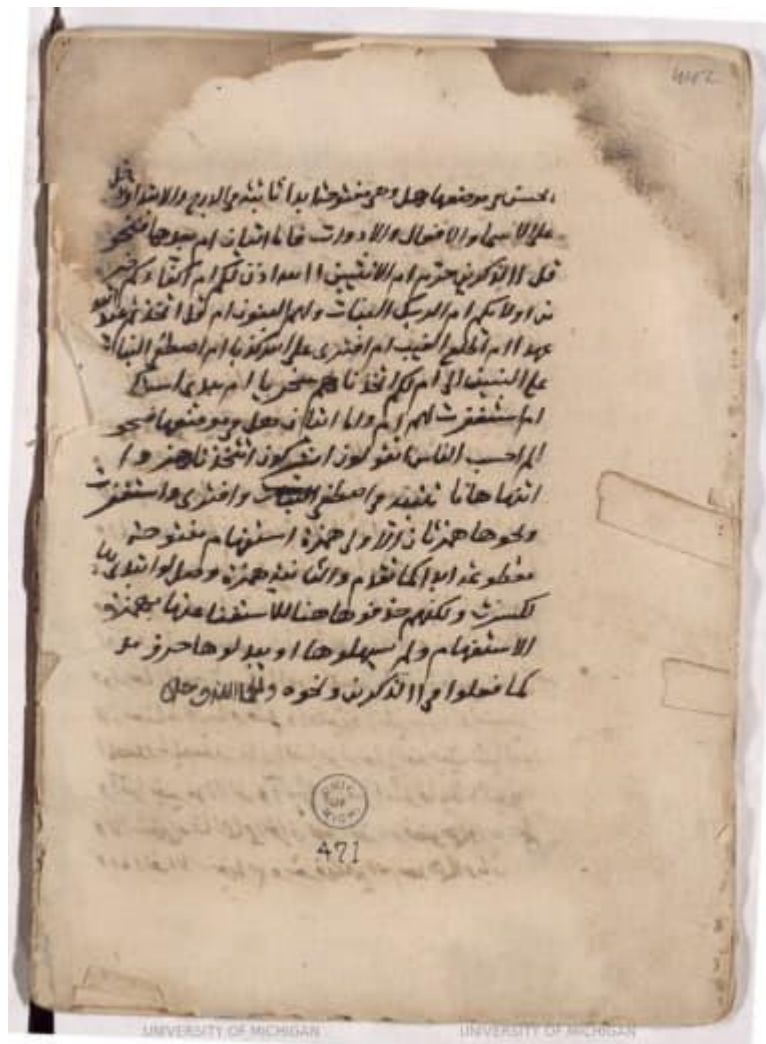 4402
يحسن في موضعها هل وهي مفتوحة ابدا ثابتة في الدرج والابتداء وتدخل
على الاسماء والافعال والادوات فاذا اتيت ام بعدها فنحو
قل آالذكرين حرم ام الانثيين االله اذن لكم ام اكفاركم خير
من اولائكم ام الربك البنات ولهم البنون ام قل اتخذتم عند الله
عهدا ام اطلع الغيب ام افترى على الله كذبا ام اصطفى البنات
على البنين ام لكم اتخذناهم سخريا ام بيدى استكبرت
ام استغفرت لهم ام واما اتيان هل في موضعها فنحو
الم احسب الناس اتقولون اتشركون اتتخذنا هزوا
انتهى هاهنا تنبيه في اصطفى البنات وافترى واستغفرت
ونحوها همزتان الاولى همزة استفهام مفتوحة
مقطوعة ابدا كما تقدم والثانية همزة وصل لو ابتدئ بها
لكسرت ولكنهم حذفوها هنا للاستغنا عنها بهمزة
الاستفهام ولم يسهلوها او يبدلوها حرف مد
كما فعلوا في االذكرين ونحوه
UNIV. OF MICH.
471
UNIVERSITY OF MICHIGAN UNIVERSITY OF MICHIGAN